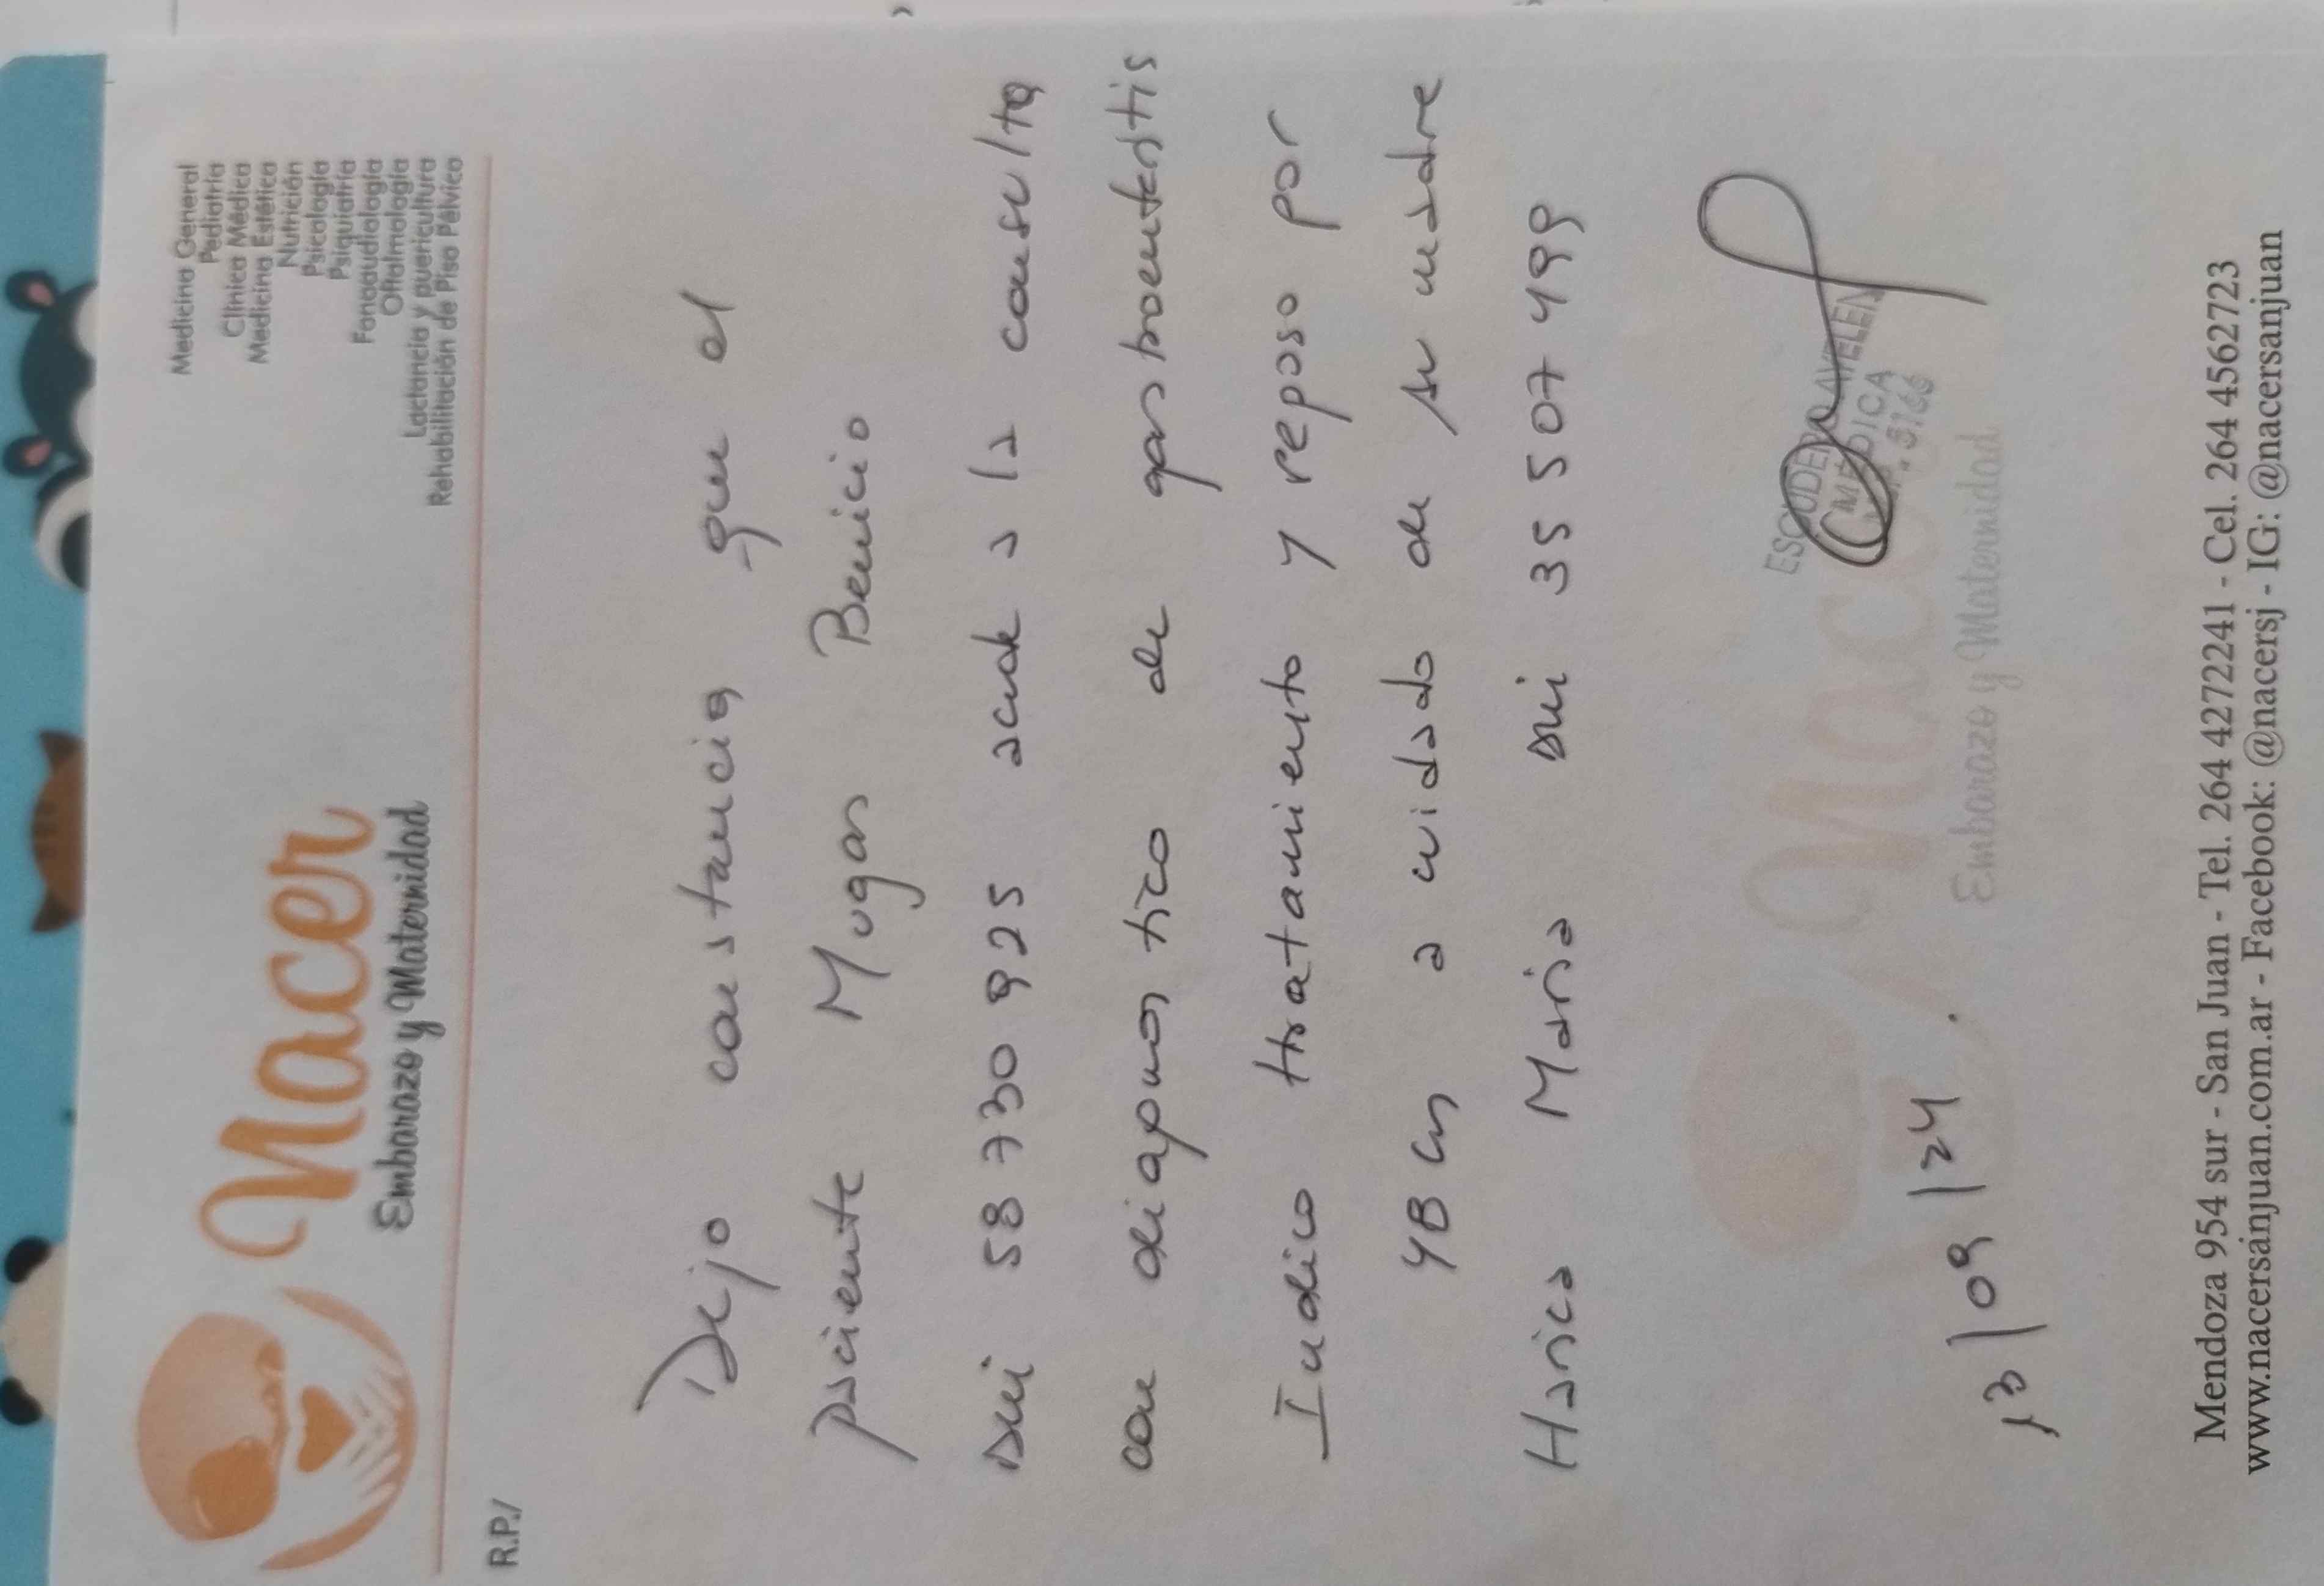 Nacer
Embarazo y Maternidad
Medicina General
Pediatría
Clínica Médica
Medicina Estética
Nutrición
Psicología
Psiquiatría
Fonoaudiología
Oftalmología
Lactancia y puericultura
Rehabilitación de Piso Pélvico
R.P./
Dejo constancia que el
paciente Mugas Benicio
DNI 58 730 925 acude a la consulta
con diagnostico de gastroenteritis
Indico tratamiento y reposo por
48 hs a cuidado de su madre
Maria DNI 35 507 499
ESCUDERO AYELEN
MÉDICA
Nacer
Embarazo y Maternidad
13/09/24.
Mendoza 954 sur - San Juan - Tel. 264 4272241 - Cel. 264 4562723
www.nacersanjuan.com.ar - Facebook: @nacersj - IG: @nacersanjuan